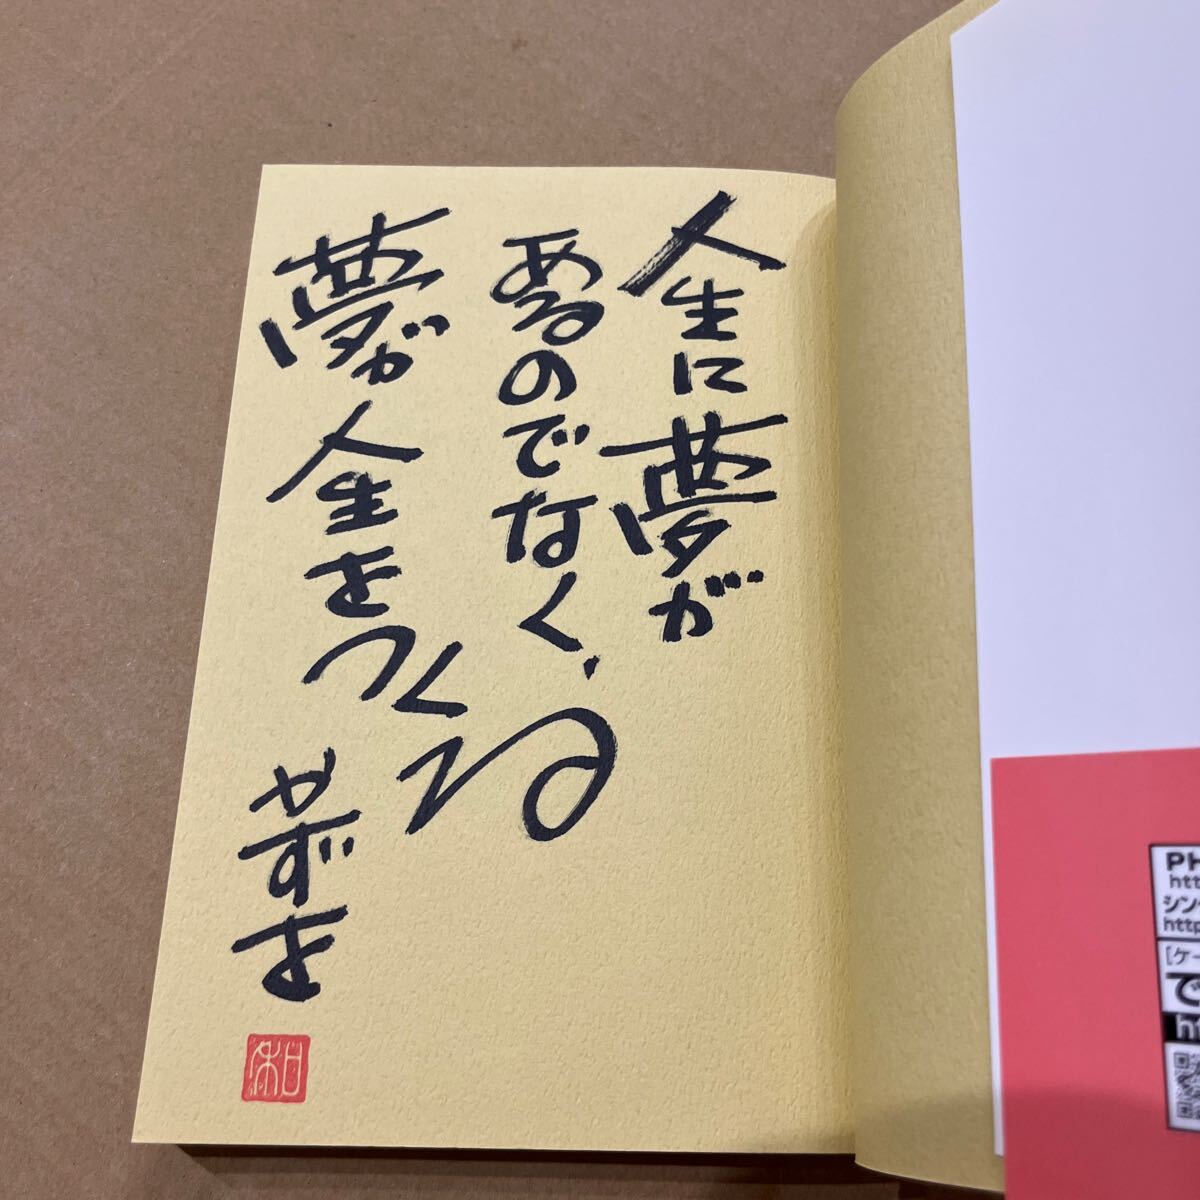 人生に夢が
あるのでなく、
夢が人生をつくる
かずを
和
PH
htt
シン
http
[ケー
で
ht